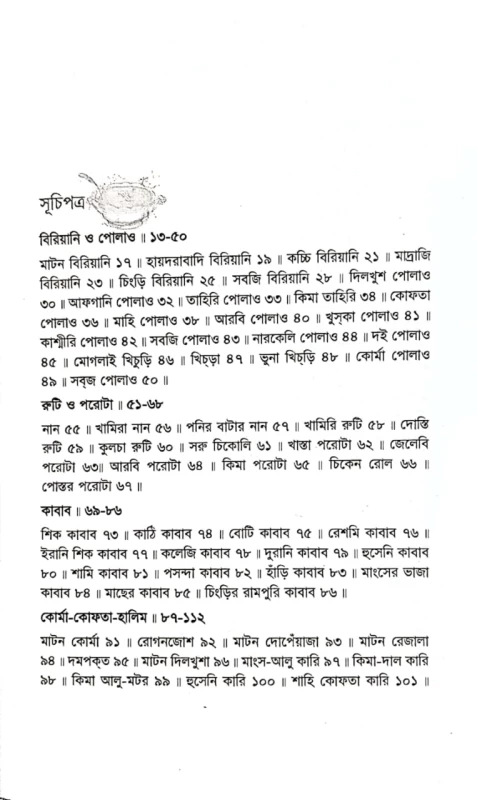 সূচিপত্র
বিরিয়ানি ও পোলাও ॥ ১৩-৫০
মাটন বিরিয়ানি ১৭ ॥ হায়দরাবাদি বিরিয়ানি ১৯ ॥ কচ্চি বিরিয়ানি ২১ ॥ মাদ্রাজি
বিরিয়ানি ২৩ ॥ চিংড়ি বিরিয়ানি ২৫ ॥ সবজি বিরিয়ানি ২৮ ॥ দিলখুশ পোলাও
৩০ ॥ আফগানি পোলাও ৩২ ॥ তাহিরি পোলাও ৩৩ ॥ কিমা তাহিরি ৩৪ ॥ কোফতা
পোলাও ৩৬ ॥ মাহি পোলাও ৩৮ ॥ আরবি পোলাও ৪০ ॥ খুস্কা পোলাও ৪১ ॥
কাশ্মীরি পোলাও ৪২ ॥ সবজি পোলাও ৪৩ ॥ নারকেলি পোলাও ৪৪ ॥ দই পোলাও
৪৫ ॥ মোগলাই খিচুড়ি ৪৬ ॥ খিচ্ড়া ৪৭ ॥ ভুনা খিচ্ড়ি ৪৮ ॥ কোর্মা পোলাও
৪৯ ॥ সব্জ পোলাও ৫০ ॥
রুটি ও পরোটা ॥ ৫১-৬৮
নান ৫৫ ॥ খামিরা নান ৫৬ ॥ পনির বাটার নান ৫৭ ॥ খামিরি রুটি ৫৮ ॥ দোস্তি
রুটি ৫৯ ॥ কুলচা রুটি ৬০ ॥ সরু চিকোলি ৬১ ॥ খাস্তা পরোটা ৬২ ॥ জেলেবি
পরোটা ৬৩॥ আরবি পরোটা ৬৪ ॥ কিমা পরোটা ৬৫ ॥ চিকেন রোল ৬৬ ॥
পোস্তর পরোটা ৬৭ ॥
কাবাব ॥ ৬৯-৮৬
শিক কাবাব ৭৩ ॥ কাঠি কাবাব ৭৪ ॥ বোটি কাবাব ৭৫ ॥ রেশমি কাবাব ৭৬ ॥
ইরানি শিক কাবাব ৭৭ ॥ কলেজি কাবাব ৭৮ ॥ দুরানি কাবাব ৭৯ ॥ হুসেনি কাবাব
৮০ ॥ শামি কাবাব ৮১ ॥ পসন্দা কাবাব ৮২ ॥ হাঁড়ি কাবাব ৮৩ ॥ মাংসের ভাজা
কাবাব ৮৪ ॥ মাছের কাবাব ৮৫ ॥ চিংড়ির রামপুরি কাবাব ৮৬ ॥
কোর্মা-কোফতা-হালিম ॥ ৮৭-১১২
মাটন কোর্মা ৯১ ॥ রোগনজোশ ৯২ ॥ মাটন দোপেঁয়াজা ৯৩ ॥ মাটন রেজালা
৯৪ ॥ দমপক্ত ৯৫ ॥ মাটন দিলখুশা ৯৬ ॥ মাংস-আলু কারি ৯৭ ॥ কিমা-দাল কারি
৯৮ ॥ কিমা আলু-মটর ৯৯ ॥ হুসেনি কারি ১০০ ॥ শাহি কোফতা কারি ১০১ ॥